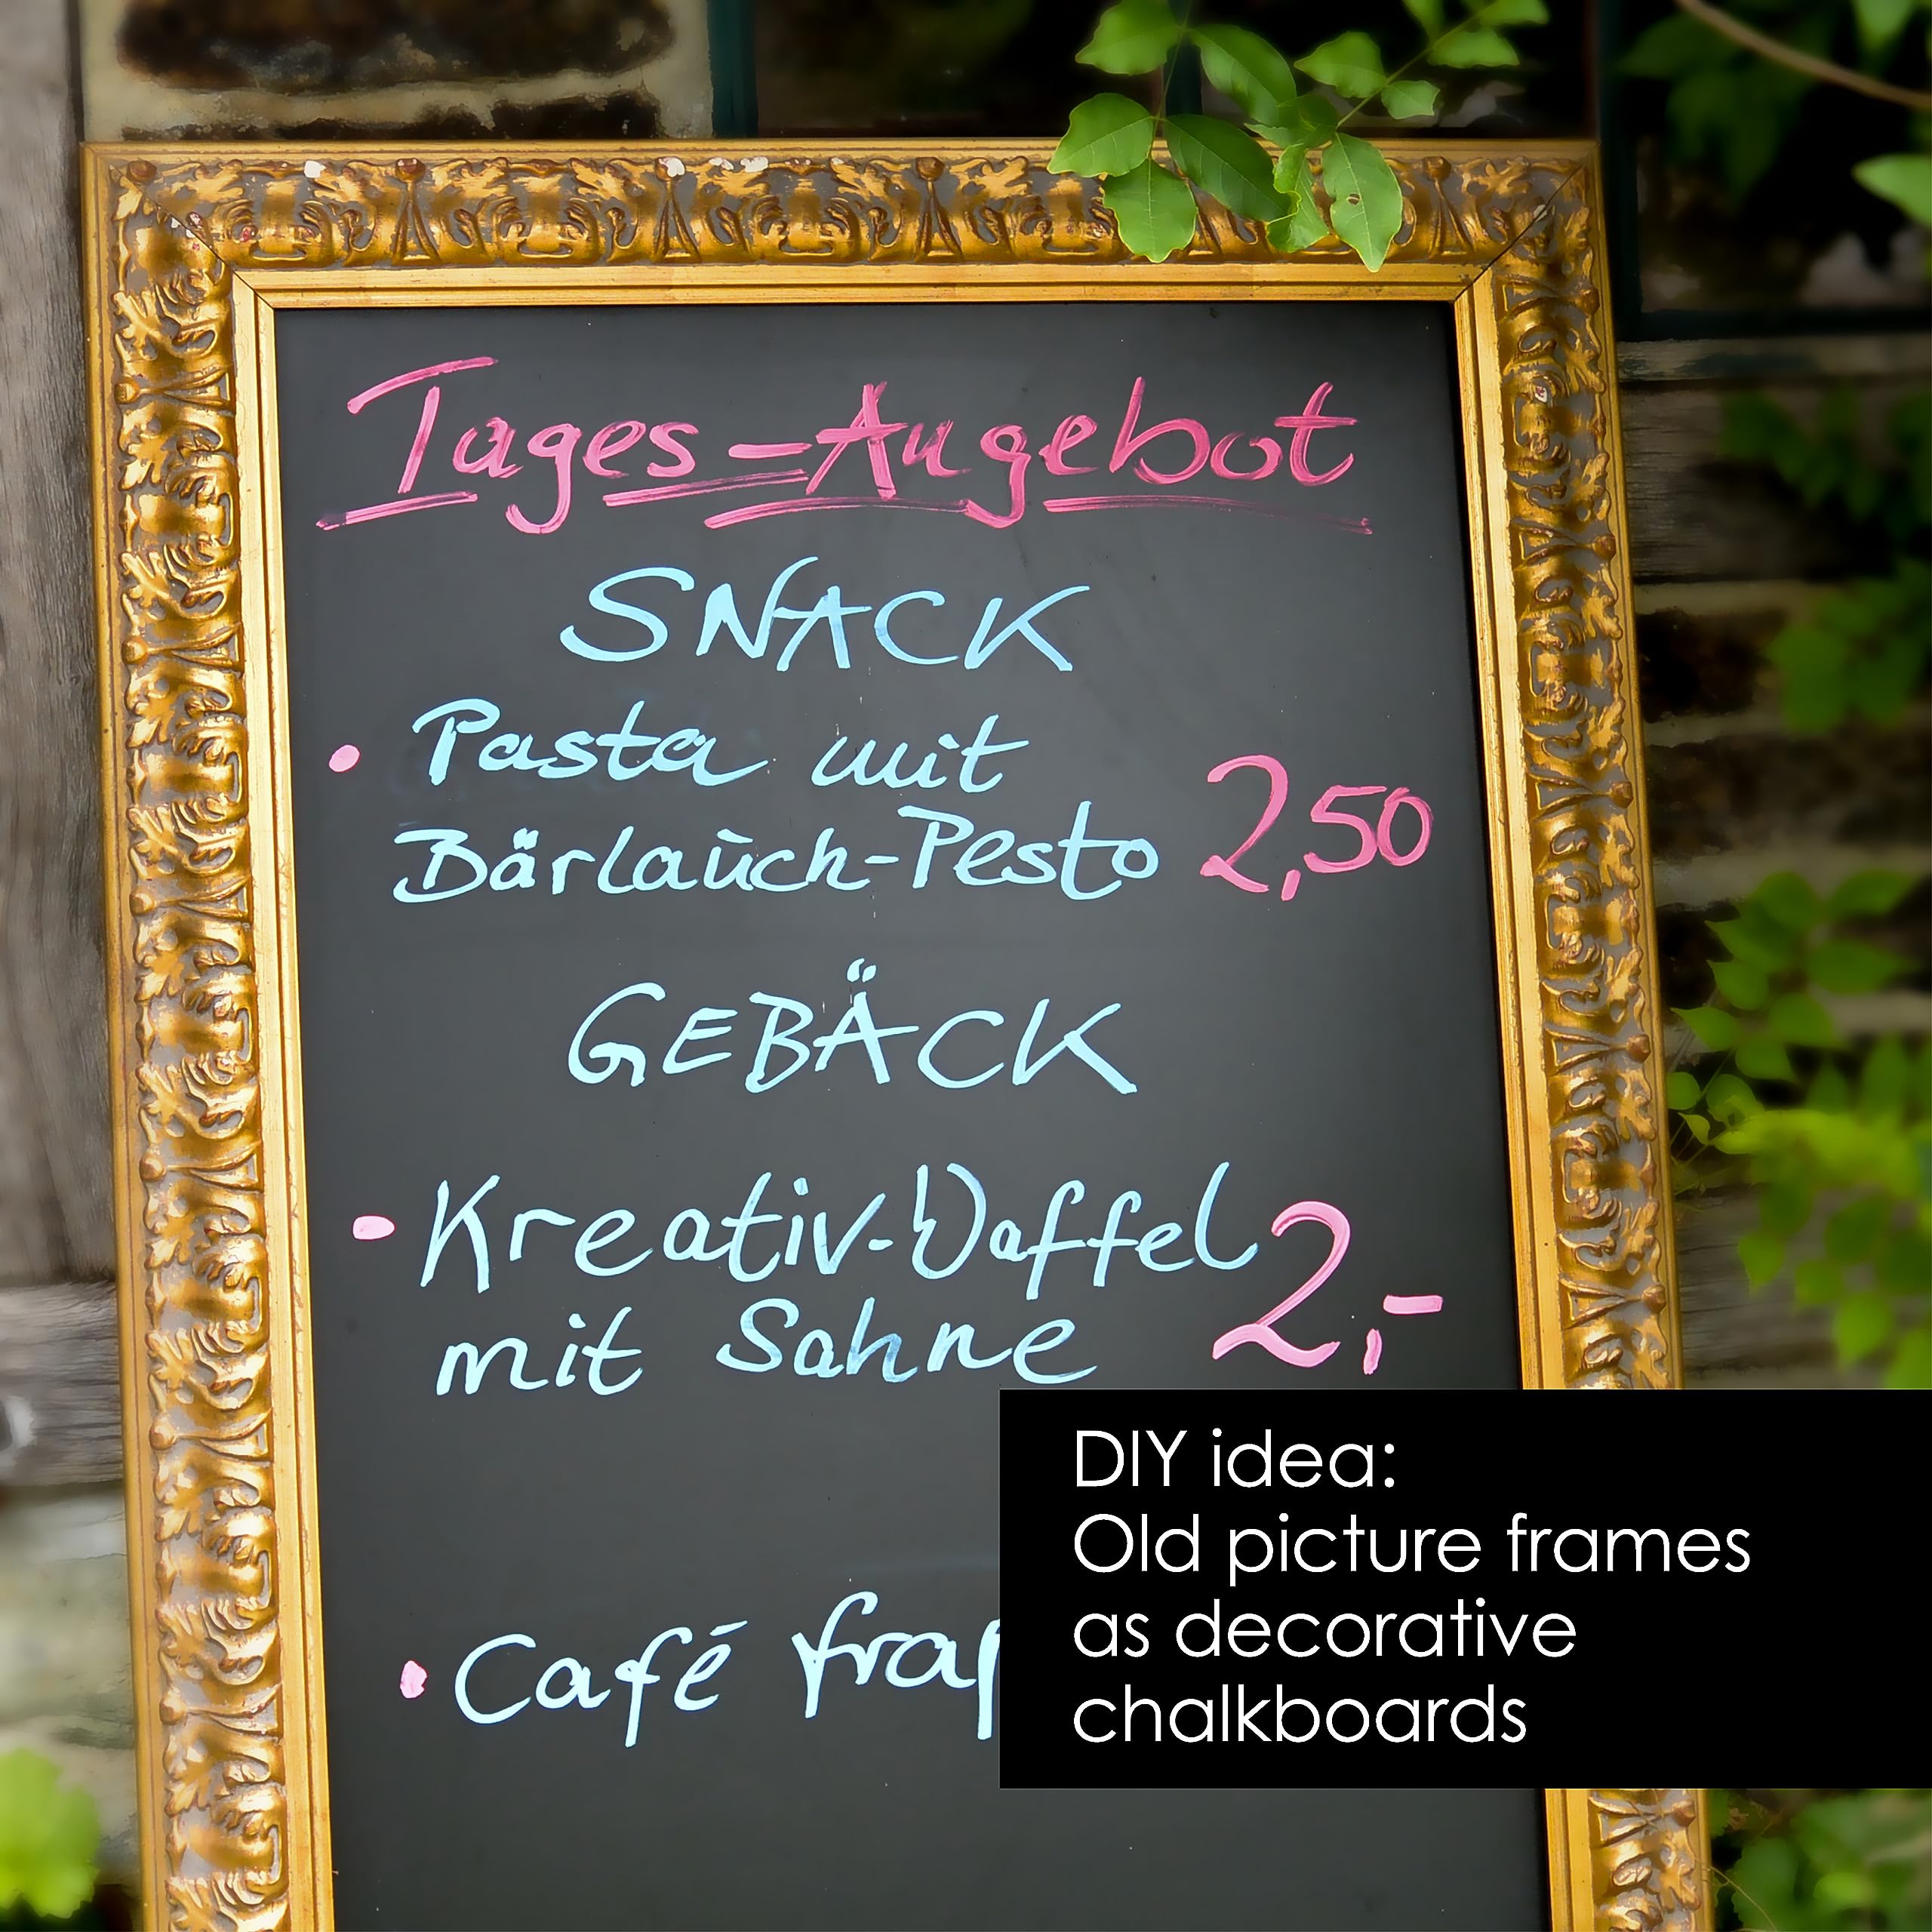 Tages-Angebot
SNACK
• Pasta mit
Bärlauch-Pesto 2,50
GEBÄCK
• Kreativ-Waffel
mit Sahne 2,-
• Café
DIY idea:
Old picture frames
as decorative
chalkboards